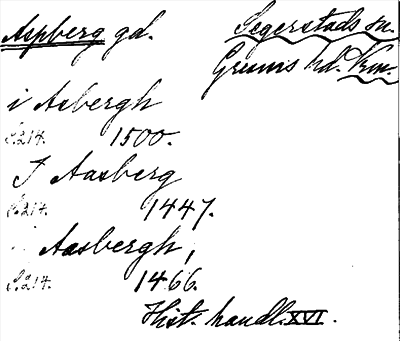 Aspberg gd. Segerstads sn.
Grums hd. Vrm.
i Asbergh
S.214. 1500.
I Aasberg
S.214. 1447.
i Aasbergh,
S.214. 1466.
Hist. handl. XVI.